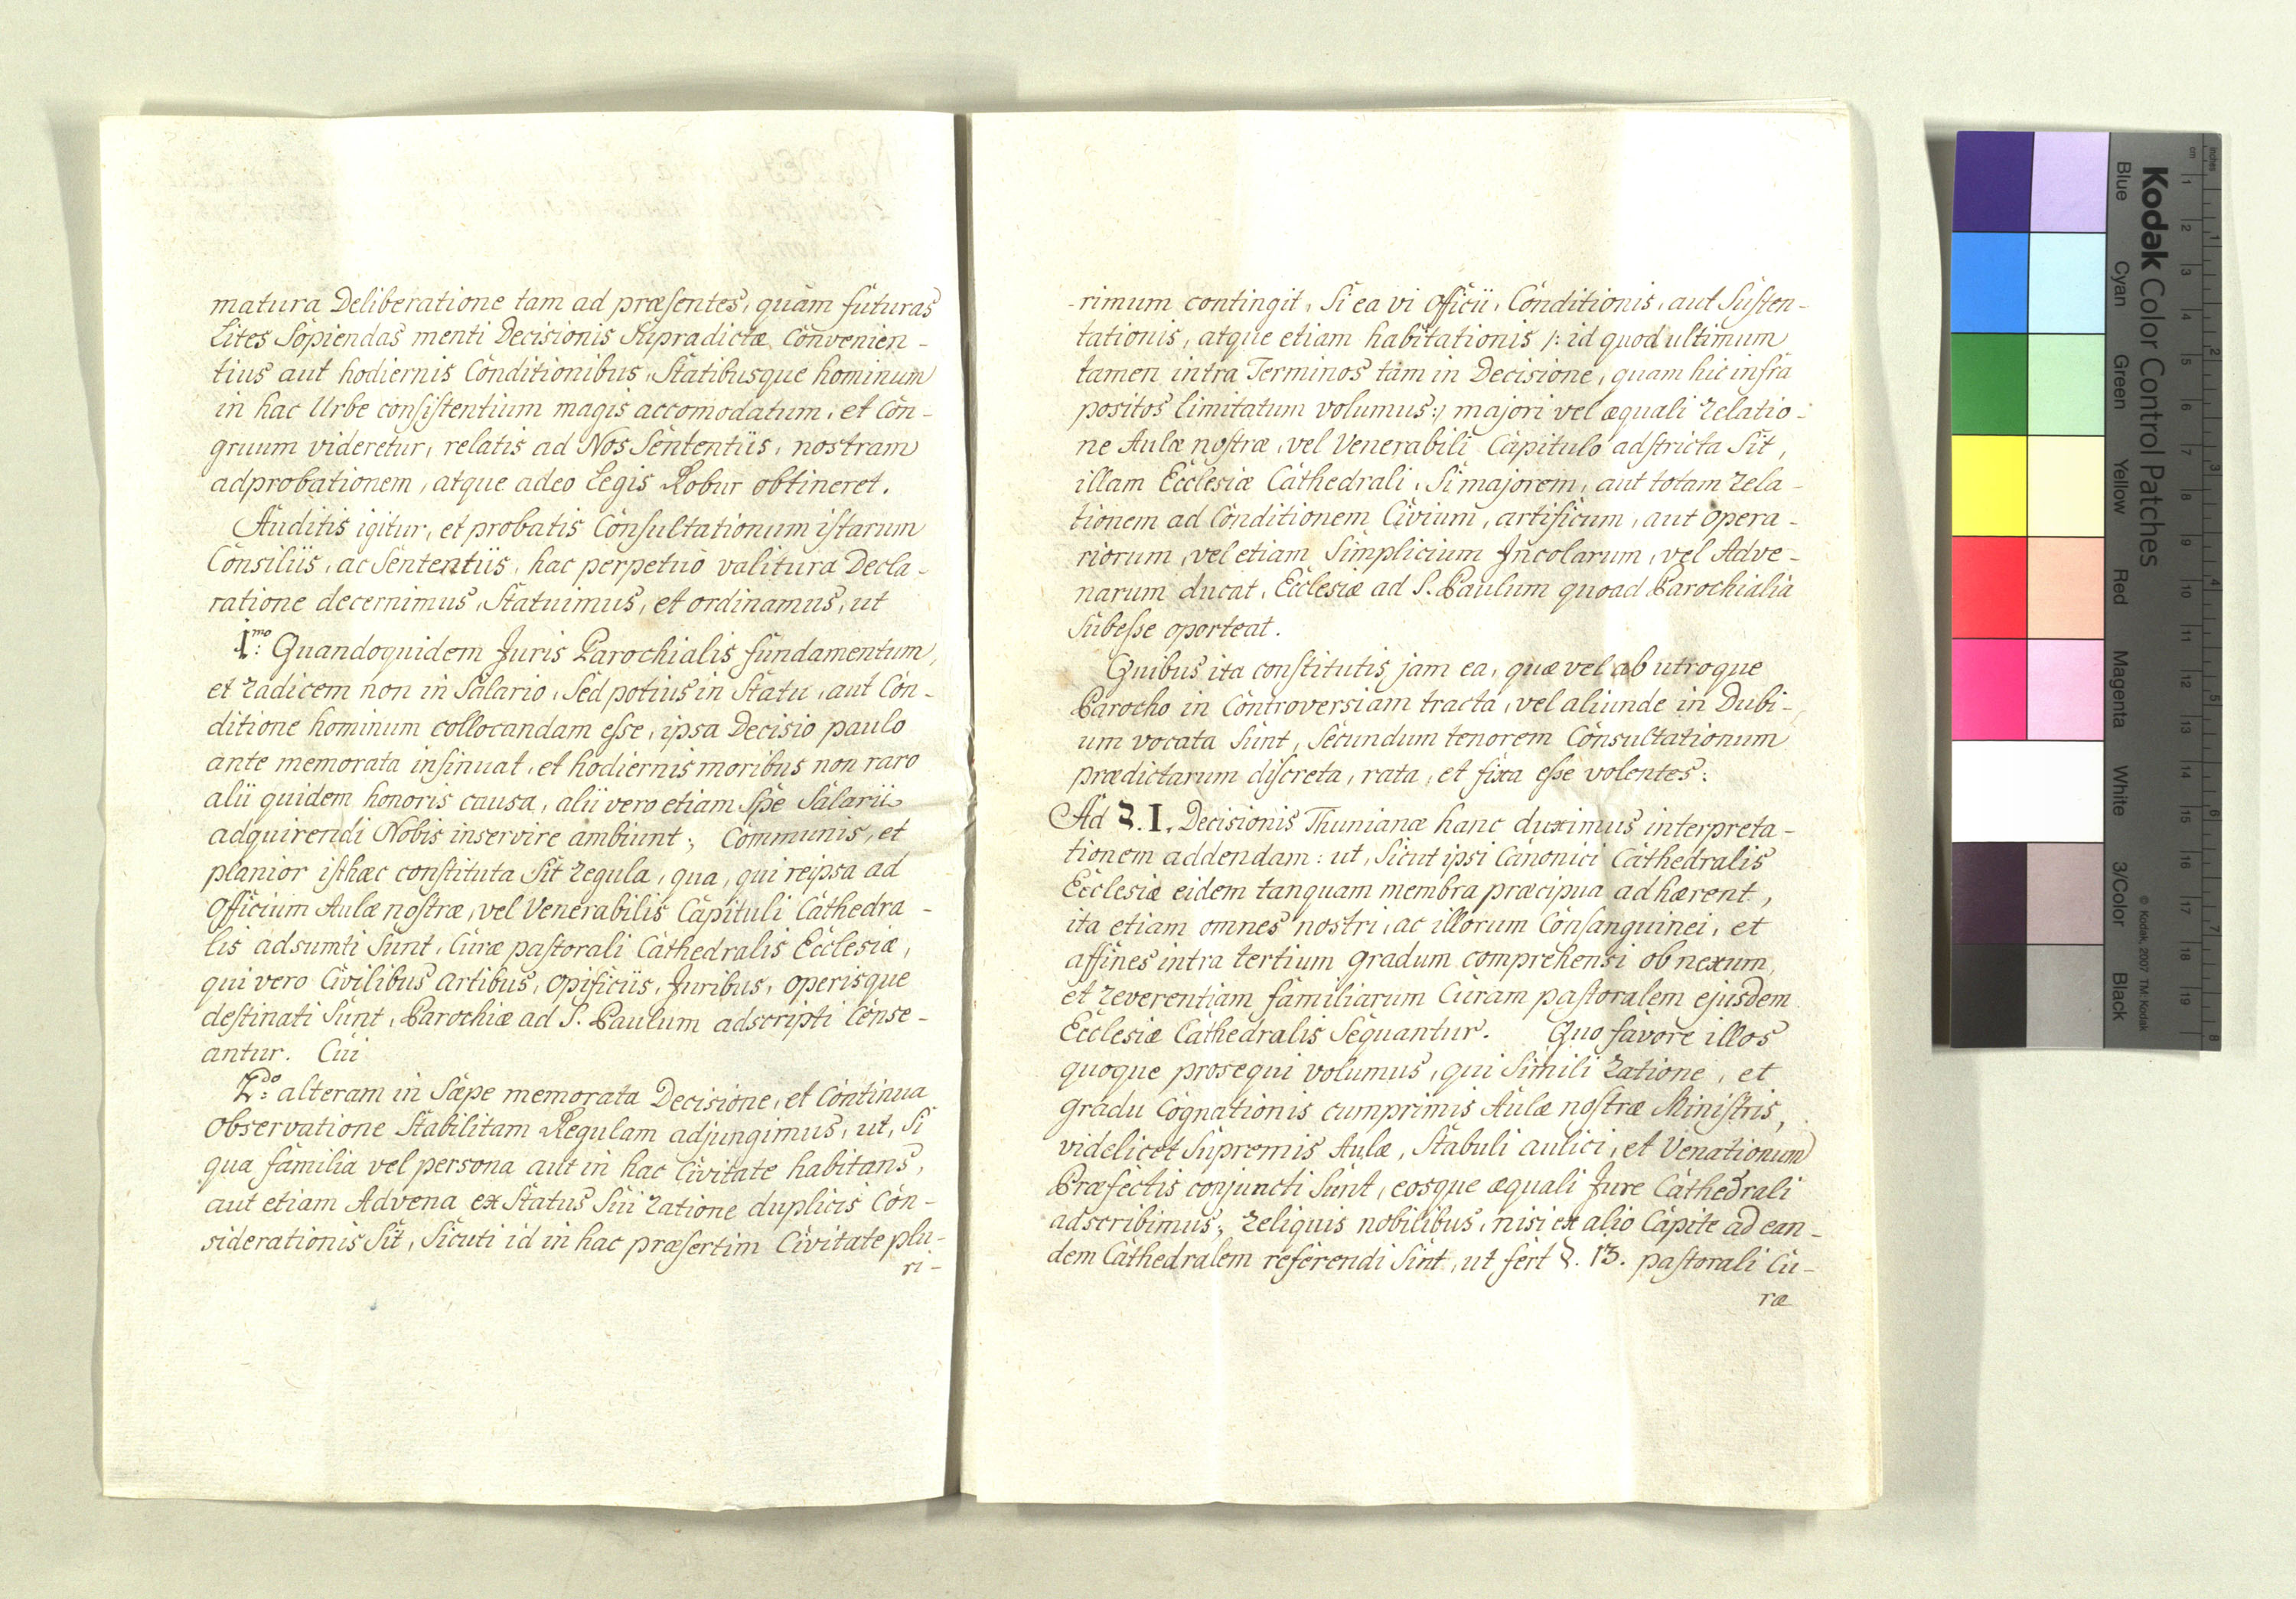 matura Deliberatione tam ad præsentes, quàm futuras
Lites Sopiendas menti Decisionis Supradictæ Convenien-
tius aut hodiernis Conditionibus, Statibusque hominum
in hac Urbe consistentium magis accomodatum, et Con-
gruum videretur, relatis ad Nos Sententiis, nostram
adprobationem, atque adeo Legis Robur obtineret.
Auditis igitur, et probatis Consultationum istarum
Consiliis, ac Sententiis, hac perpetuò valitura Decla-
ratione decernimus, Statuimus, et ordinamus, ut
I.mo Quandoquidem Juris Parochialis fundamentum,
et radicem non in Salario, Sed potius in Statu, aut Con-
ditione hominum collocandam esse, ipsa Decisio paulo
ante memorata insinuat, et hodiernis moribus non raro
alii quidem honoris causa, alii vero etiam Spe Salarii
adquirendi Nobis inservire ambiunt; Communis, et
planior isthæc constituta Sit regula, qua, qui reipsa ad
Officium Aulæ nostræ, vel Venerabilis Capituli Cathedra-
lis adsumti Sunt, Curæ pastorali Cathedralis Ecclesiæ,
qui vero Civilibus artibus, opificiis, Juribus, operisque
destinati Sunt, Parochiæ ad S. Paulum adscripti Cense-
antur. Cui
2.do alteram in Sæpe memorata Decisione, et Continua
observatione Stabilitam Regulam adjungimus, ut, Si
qua familia vel persona aut in hac Civitate habitans,
aut etiam Advena ex Status Sui ratione duplicis Con-
siderationis Sit, Sicuti id in hac præsertim Civitate plu-
ri-
-rimum contingit, Si ea vi officii, Conditionis, aut Susten-
tationis, atque etiam habitationis /: id quod ultimum
tamen intra Terminos tam in Decisione, quam hic infra
positos limitatum volumus:/ majori vel æquali relatio-
ne Aulæ nostræ, vel Venerabili Capitulo adstricta Sit,
illam Ecclesiæ Cathedrali, Si majorem, aut totam rela-
tionem ad Conditionem Civium, artificum, aut opera-
riorum, vel etiam Simplicium Incolarum, vel Adve-
narum ducat, Ecclesiæ ad S. Paulum quoad Parochialia
Subesse oporteat.
Quibus ita constitutis, jam ea, quæ vel ab utroque
Parocho in Controversiam tracta, vel aliunde in Dubi-
um vocata Sunt, Secundum tenorem Consultationum
prædictarum discreta, rata, et fixa esse volentes:
Ad §. I. Decisionis Thunianæ hanc duximus interpreta-
tionem addendam: ut, Sicut ipsi Canonici Cathedralis
Ecclesiæ eidem tanquam membra præcipua adhærent,
ita etiam omnes nostri, ac illorum Consanguinei, et
affines intra tertium gradum comprehensi ob nexum,
et reverentiam familiarum Curam pastoralem ejusdem
Ecclesiæ Cathedralis Sequantur. Quo favore illos
quoque prosequi volumus, qui Simili ratione, et
gradu Cognationis cumprimis Aulæ nostræ Ministris,
videlicet Supremis Aulæ, Stabuli aulici, et Venationum
Præfectis conjuncti Sunt, eosque æquali Jure Cathedrali
adscribimus; reliquis nobilibus, nisi ex alio Capite ad ean-
dem Cathedralem referendi Sint, ut fert §. 13. pastorali Cu-
ræ
Kodak Color Control Patches
Blue Cyan Green Yellow Red Magenta White 3/Color Black
© Kodak, 2007 TM: Kodak
inches 1 2 3 4 5 6 7 8
cm 1 2 3 4 5 6 7 8 9 10 11 12 13 14 15 16 17 18 19